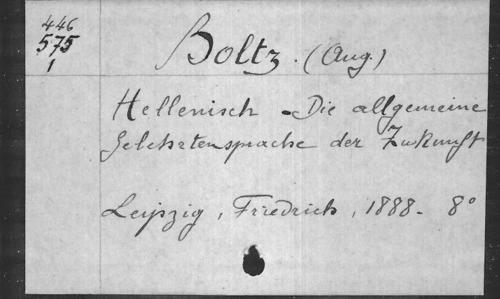 446
575
1
Boltz. (Aug.)
Hellenisch - Die allgemeine
Gelehrtensprache der Zukunft
Leipzig, Friedrich, 1888 - 8°